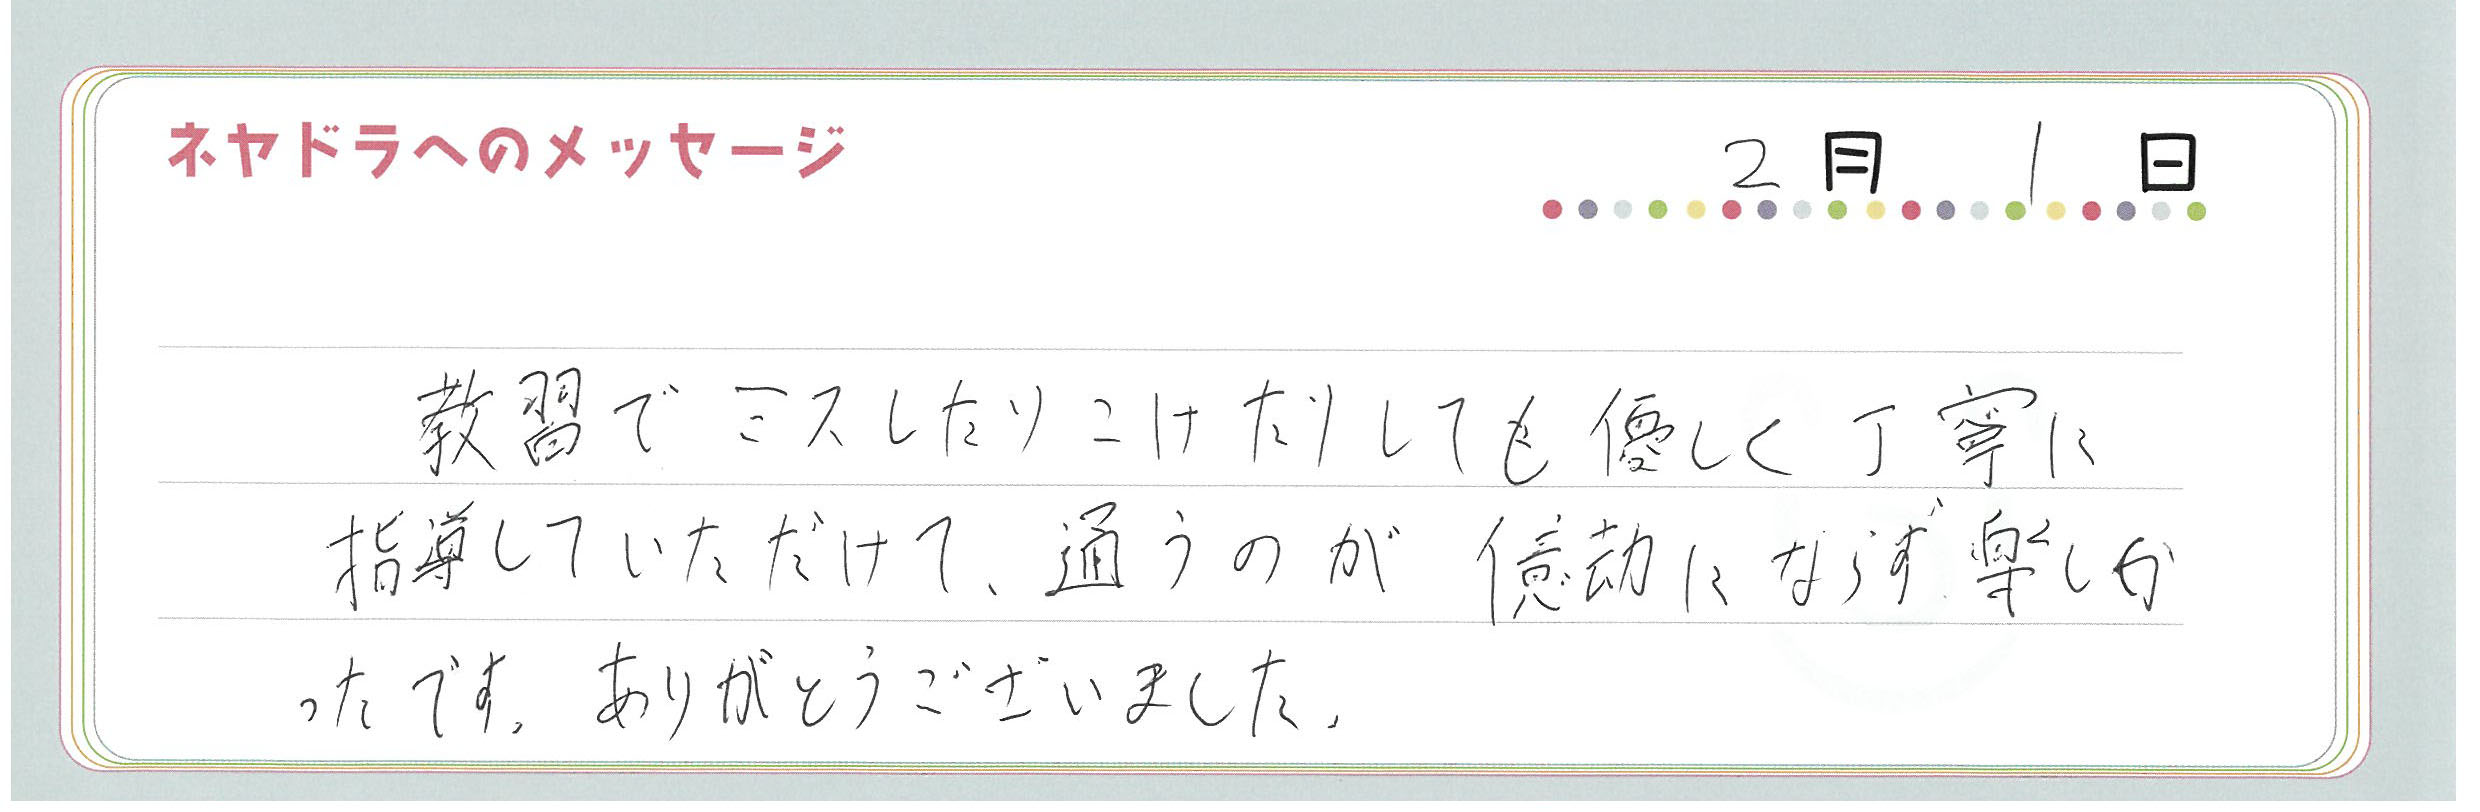 ネヤドラへのメッセージ
2月 1日
教習でミスしたりこけたりしても優しく丁寧に
指導していただけて、通うのが億劫にならず楽しか
ったです。ありがとうございました。